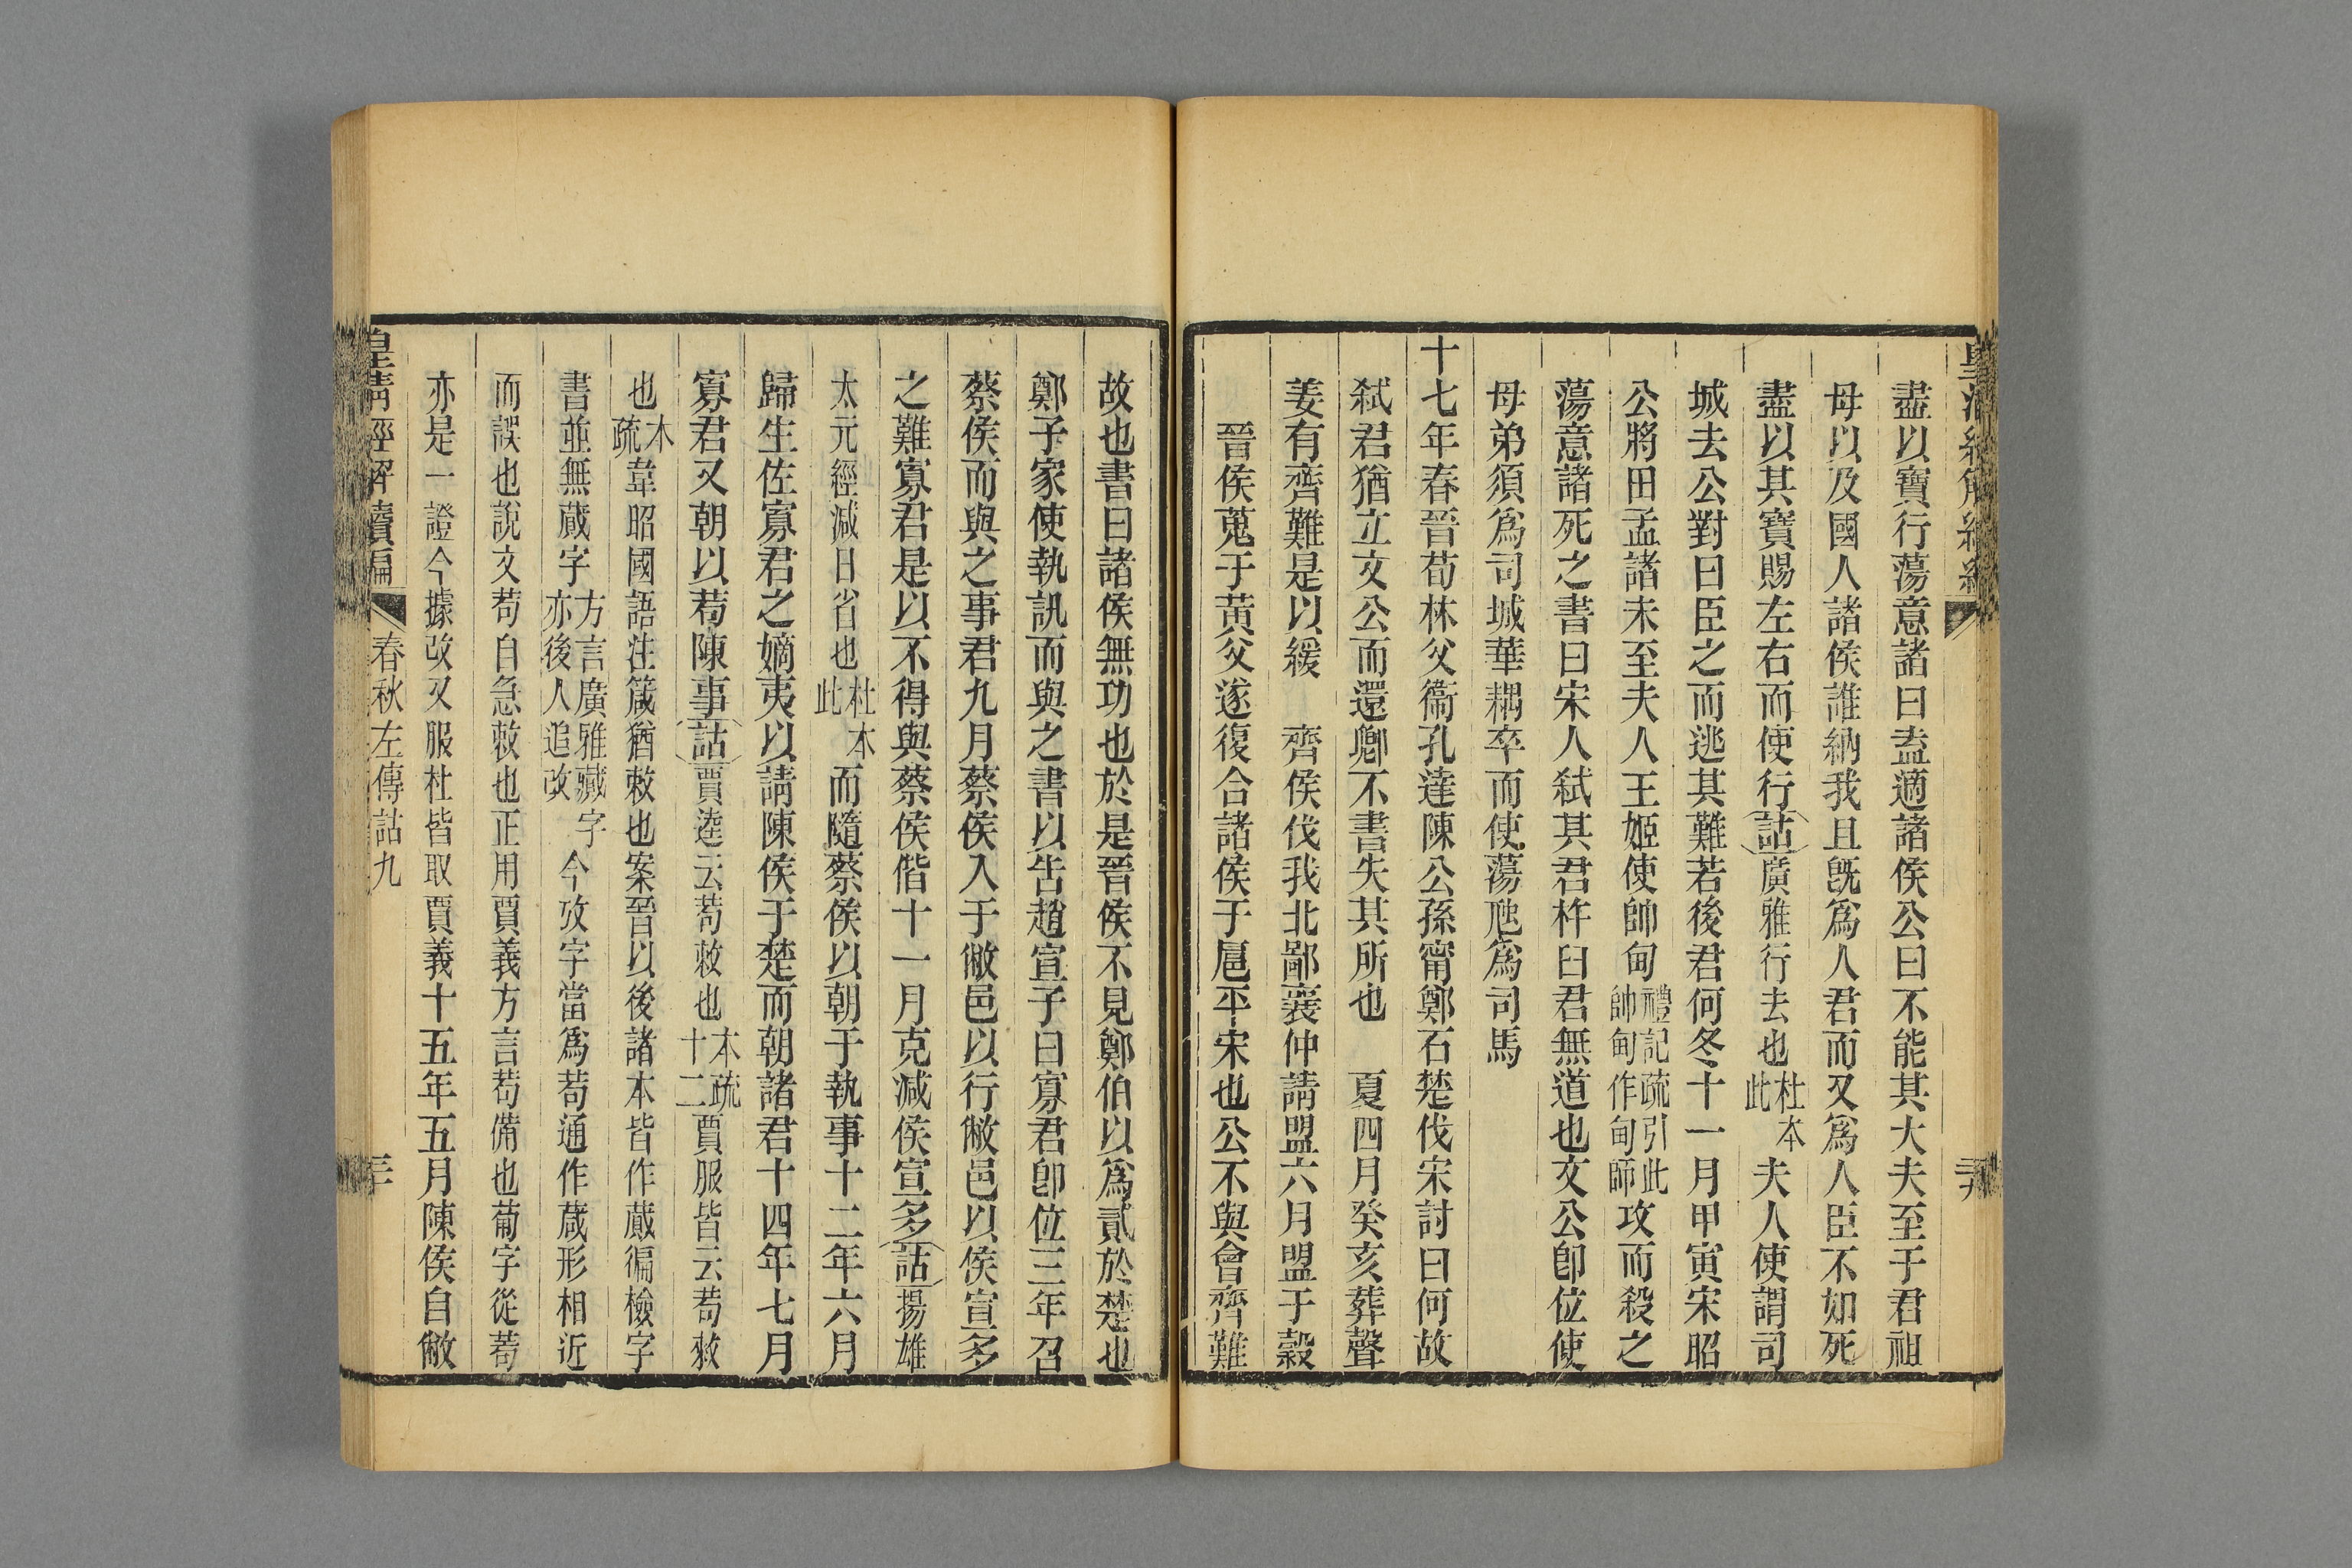 皇清經解續編
盡以寶行蕩意諸曰盍適諸侯公曰不能其大夫至于君祖
母以及國人諸侯誰納我且旣爲人君而又爲人臣不如死
盡以其寶賜左右而使行詁廣雅行去也杜本此夫人使謂司
城去公對曰臣之而逃其難若後君何冬十一月甲寅宋昭
公將田孟諸未至夫人王姬使帥甸禮記疏引此帥甸作甸師攻而殺之
蕩意諸死之書曰宋人弑其君杵臼君無道也文公卽位使
母弟須爲司城華耦卒而使蕩虺爲司馬
十七年春晉荀林父衞孔達陳公孫甯鄭石楚伐宋討曰何故
弑君猶立文公而還卿不書失其所也 夏四月癸亥葬聲
姜有齊難是以緩 齊侯伐我北鄙襄仲請盟六月盟于穀
晉侯蒐于黃父遂復合諸侯于扈平宋也公不與會齊難
故也書曰諸侯無功也於是晉侯不見鄭伯以爲貳於楚也
鄭子家使執訊而與之書以告趙宣子曰寡君卽位三年召
蔡侯而與之事君九月蔡侯入于敝邑以行敝邑以侯宣多
之難寡君是以不得與蔡侯偕十一月克減侯宣多詁揚雄
太元經減日省也杜本此而隨蔡侯以朝于執事十二年六月
歸生佐寡君之嫡夷以請陳侯于楚而朝諸君十四年七月
寡君又朝以茍陳事詁賈逵云茍敕也本疏十二賈服皆云茍敕
也本疏韋昭國語注箴猶敕也案晉以後諸本皆作蕆徧檢字
書並無蕆字方言廣雅藏字亦後人追改今攷字當爲茍通作葴形相近
而誤也說文茍自急敕也正用賈義方言茍備也葡字從茍
亦是一證今據改又服杜皆取賈義十五年五月陳侯自敝
皇清經解續編 春秋左傳詁九 三十